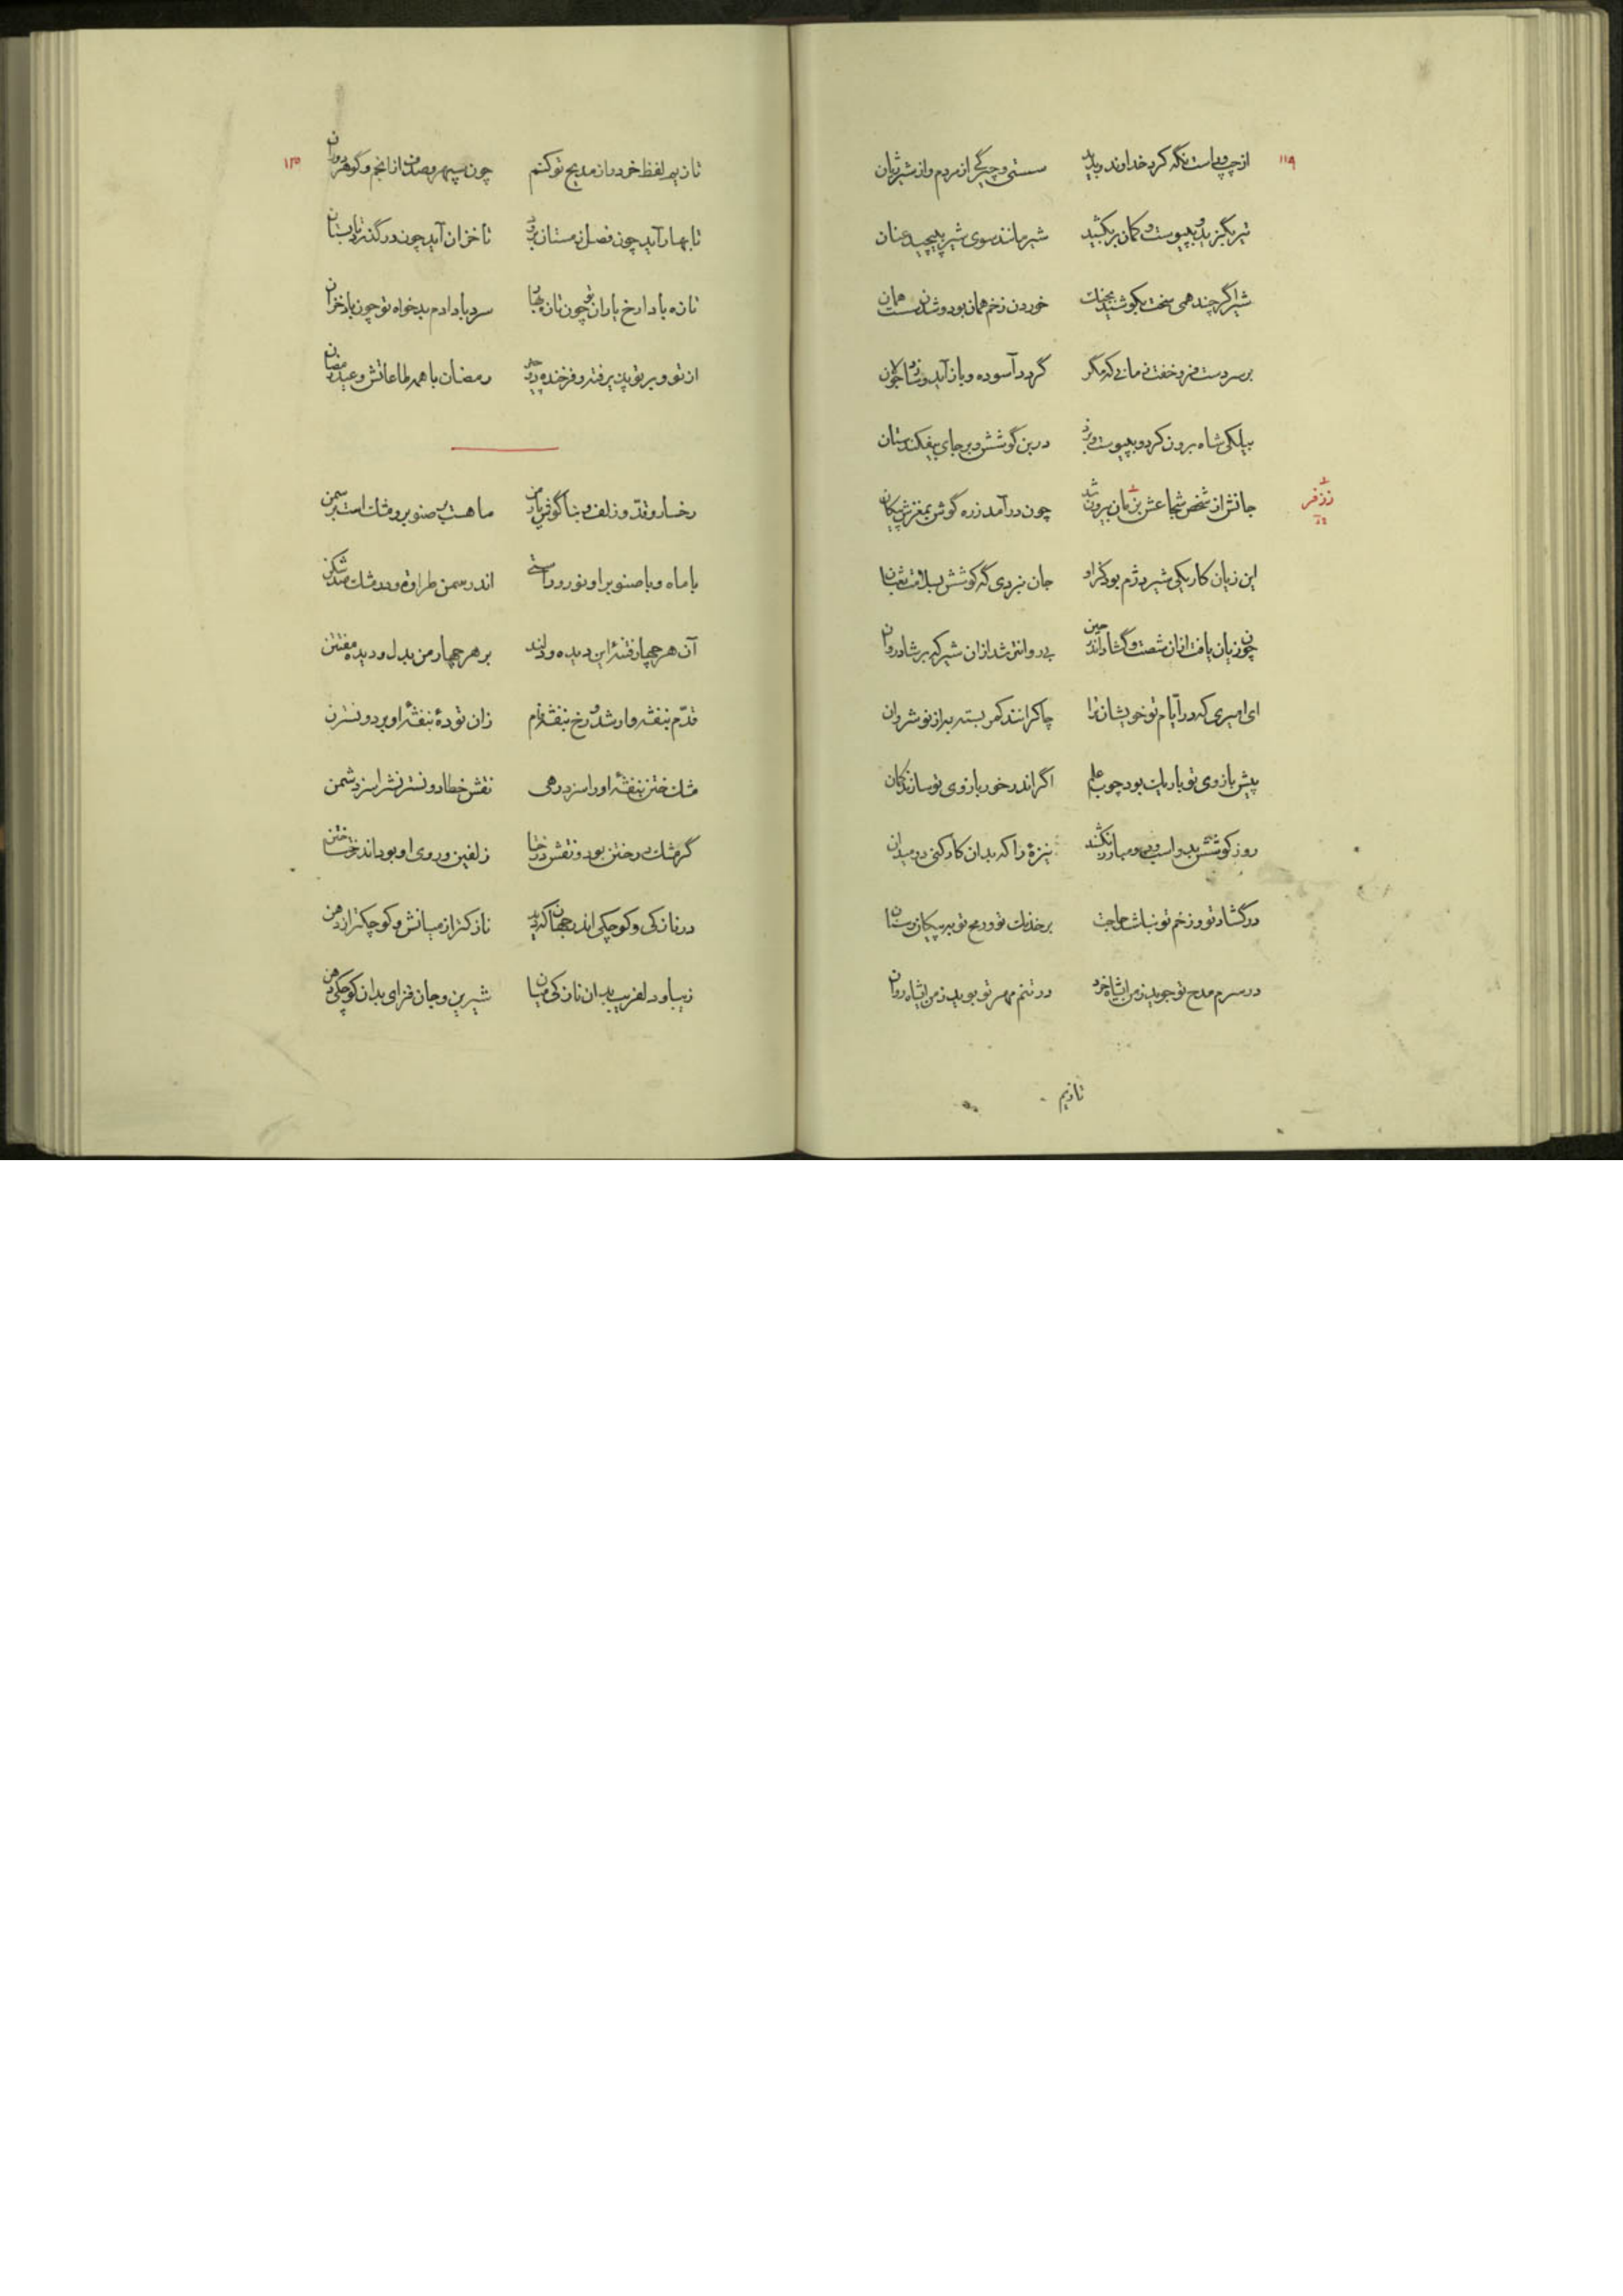 ۱۱۹
از چپ و راست نگه کرد خداوند و بدید سستی و چیرگی از مردم و از شیر ژیان
تیر بگزید و بپیوست و کمان برکشید شیر مانند سوی شیر بپیچید عنان
شیر اگر چند همی سخت بکوشید بجنگ خوردن زخم همان بود و شدن سست همان
بر سر دست فرو خفت زمانی که مگر گردد آسوده و باز آید و زد با جولان
بیلکی شاه برون کرد و بپیوست و بزد در بن گوشش و بر جای بیفکند ستان
جانش از شخص شجاعش بزمان بیرون شد چون درآمد زره گوش بمغزش پیکان
زفر
این زیان کار یکی شیر دژم بود کزو جان نبردی گه کوشش بسلامت ثعبان
چون زیان یافت ازان شست و گشاد اندر حین بی روانتر شد ازان شیر که بر شادروان
ای امیری که در ایام تو خویشان ترا چاکرانند کمر بسته به از نوشروان
پیش بازوی تو باریک بود چوب علم اگر اندر خور بازوی تو سازند کان
روز کوشش بدو اسب و دو مبارز نکشند نیزهٔ را که بدان کار کنی در میدان
در گشاد تو و زخم تو نباشد حاجت بر خدنگ تو و رمح تو به پیکان و سنان
در سرم مدح تو جوید ز من ایشاه خرد در تنم مهر تو بوید ز من ایشاه روان
تازیم
۱۲۰
تا زیم لفظ خرد را ز مدیح تو کنم چون سپهر و صدف از انجم و گوهر
تا بهار آید چون فصل زمستان برود تا خزان آید چون درگذرد تابستان
تازه بادا رخ یاران تو چون تازه بهار سرد بادا دم بدخواه تو چون باد خزان
از تو و بر تو پذیرفته و فرخنده رمضان با همه طاعاتش و عید رمضان
رخسار و قد و زلف و بناگوش یار من ماهست و صنوبر و مشک است و سمن
با ماه و با صنوبر او نور و راستی اندر سمن طراوه و در مشک صد شکن
آن هر چهار فتنهٔ این دیده و دلند بر هر چهار من بدل و دیده مفتتن
قدم بنفشه وار شد و رخ بنفشه فام زان تودهٔ بنفشه او بر دو نسترن
مشک ختن بنفشهٔ او را سزد رهی نقش خطا دو نسترنش را سزد شمن
گر مشک در ختن بود و نقش در خطا زلفین و روی او بود اندر خطا ختن
در نازکی و کوچکی اندر جهان که دید نازکتر از میانش و کوچکتر از دهن
زیبا و دلفریب بدان نازکی میان شیرین و جان فزای بدان کوچکی دهن